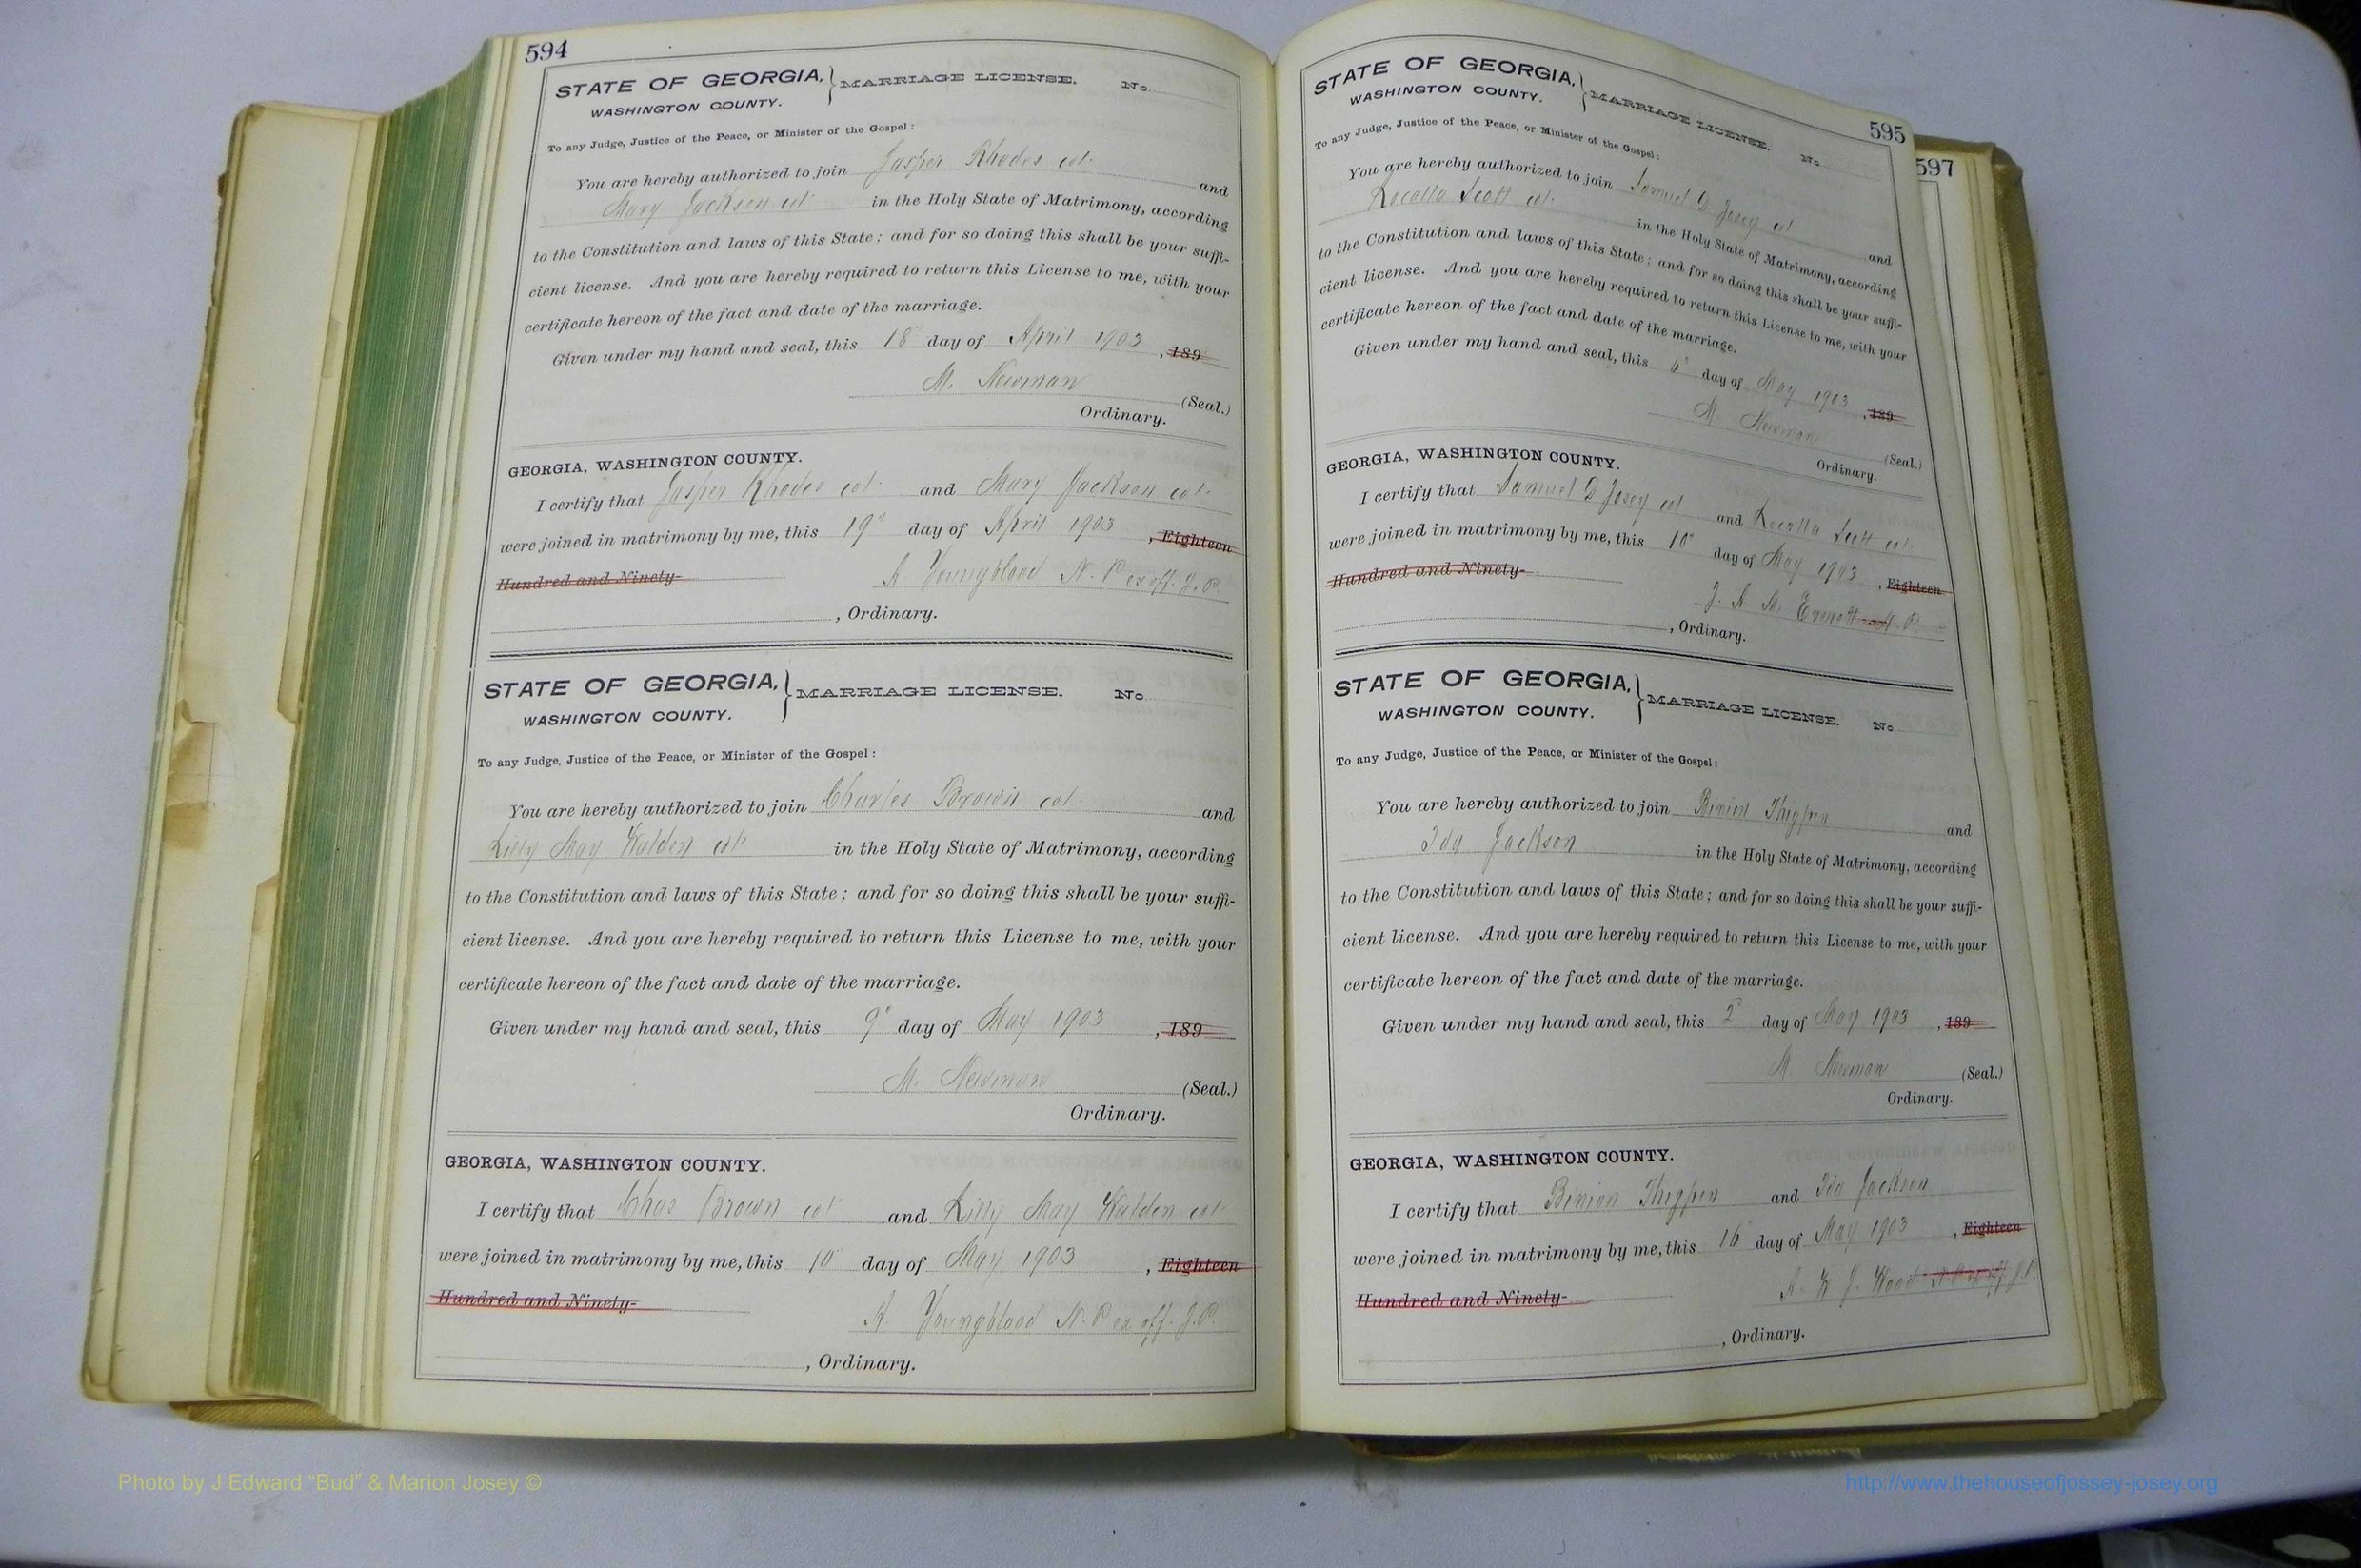 594
STATE OF GEORGIA, MARRIAGE LICENSE. No.
WASHINGTON COUNTY.
To any Judge, Justice of the Peace, or Minister of the Gospel:
You are hereby authorized to join Jasper Rhodes col. and
Mary Jackson col in the Holy State of Matrimony, according
to the Constitution and laws of this State; and for so doing this shall be your suffi-
cient license. And you are hereby required to return this License to me, with your
certificate hereon of the fact and date of the marriage.
Given under my hand and seal, this 18" day of April 1903, 189
M. Newman (Seal.)
Ordinary.
GEORGIA, WASHINGTON COUNTY.
I certify that Jasper Rhodes col. and Mary Jackson col.
were joined in matrimony by me, this 19" day of April 1903, Eighteen
Hundred and Ninety- Youngblood N. P. ex off. J. P.
, Ordinary.
STATE OF GEORGIA, MARRIAGE LICENSE. No
WASHINGTON COUNTY.
To any Judge, Justice of the Peace, or Minister of the Gospel:
You are hereby authorized to join Charles Brown col. and
Lilly May Walden col. in the Holy State of Matrimony, according
to the Constitution and laws of this State; and for so doing this shall be your suffi-
cient license. And you are hereby required to return this License to me, with your
certificate hereon of the fact and date of the marriage.
Given under my hand and seal, this 9" day of May 1903, 189
M. Newman (Seal.)
Ordinary.
GEORGIA, WASHINGTON COUNTY.
I certify that Chas Brown col and Lilly May Walden col.
were joined in matrimony by me, this 10" day of May 1903, Eighteen
Hundred and Ninety-
Youngblood N. P. ex off. J. P.
, Ordinary.
595
597
STATE OF GEORGIA, MARRIAGE LICENSE. No.
WASHINGTON COUNTY.
To any Judge, Justice of the Peace, or Minister of the Gospel:
You are hereby authorized to join Samuel D Josey col and
Scott col. in the Holy State of Matrimony, according
to the Constitution and laws of this State; and for so doing this shall be your suffi-
cient license. And you are hereby required to return this License to me, with your
certificate hereon of the fact and date of the marriage.
Given under my hand and seal, this 6" day of May 1903, 189
M. Newman (Seal.)
Ordinary.
GEORGIA, WASHINGTON COUNTY.
I certify that Samuel D Josey col and Scott col.
were joined in matrimony by me, this 10" day of May 1903, Eighteen
Hundred and Ninety-
, Ordinary.
STATE OF GEORGIA, MARRIAGE LICENSE. No
WASHINGTON COUNTY.
To any Judge, Justice of the Peace, or Minister of the Gospel:
You are hereby authorized to join Binion Thigpen and
Ida Jackson in the Holy State of Matrimony, according
to the Constitution and laws of this State; and for so doing this shall be your suffi-
cient license. And you are hereby required to return this License to me, with your
certificate hereon of the fact and date of the marriage.
Given under my hand and seal, this 2" day of May 1903, 189
M. Newman (Seal.)
Ordinary.
GEORGIA, WASHINGTON COUNTY.
I certify that Binion Thigpen and Ida Jackson
were joined in matrimony by me, this 16 day of May 1903, Eighteen
Hundred and Ninety- J. Wood
, Ordinary.
Photo by J Edward “Bud” & Marion Josey ©
http://www.thehouseofjossey-josey.org